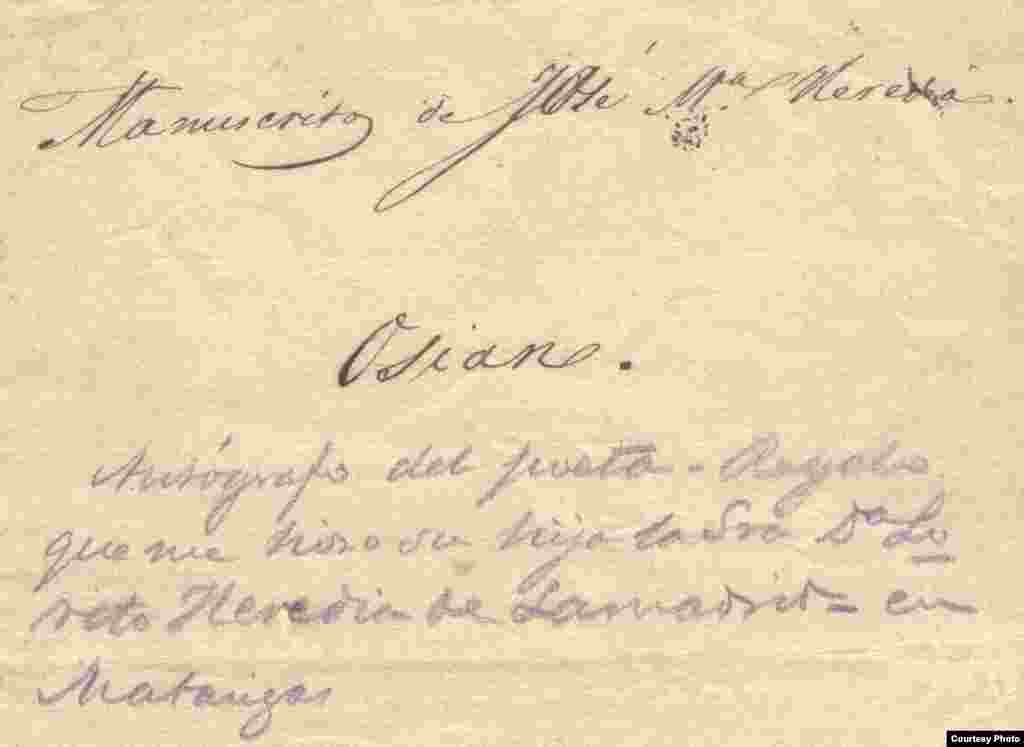 Manuscrito de José Mª Heredia.
Osian.
Autógrafo del poeta - Regalo
que me hizo su hija la Sra Dª Lo
reto Heredia de Lamadrid - en
Matanzas
Courtesy Photo